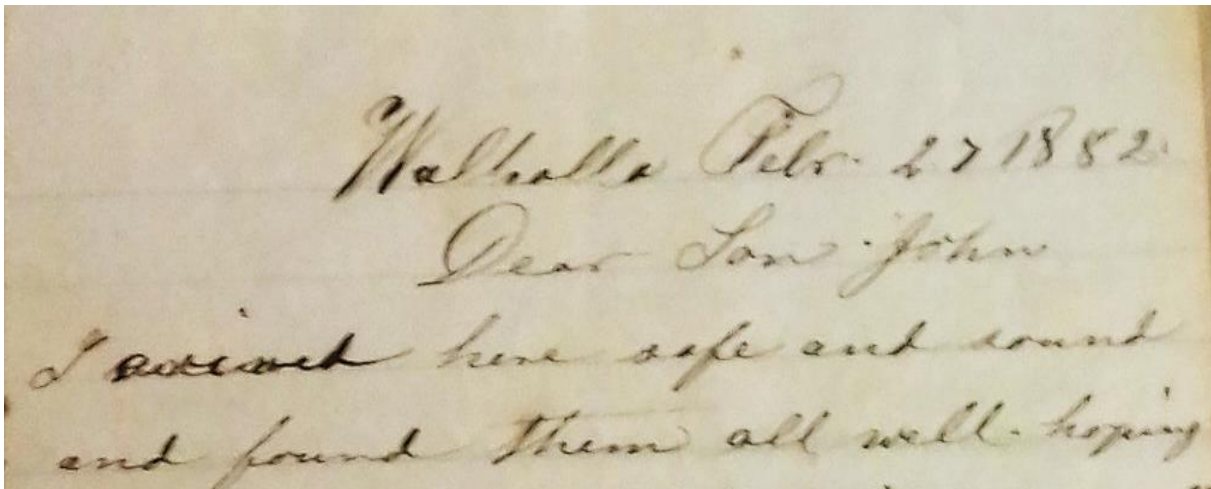 Walhalla Febr. 27 1882.
Dear Son John
I arived here safe and sound
and found them all well. hoping